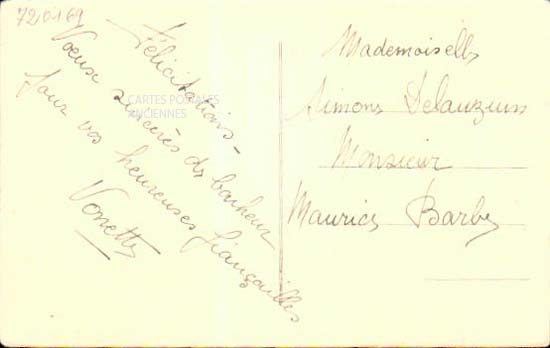 720169
Félicitations -
Voeux sincères de bonheur
pour vos heureuses fiançailles
Vonette
CARTES POSTALES
ANCIENNES
Mademoiselle
Simone Delauzun
Monsieur
Maurice Barbe